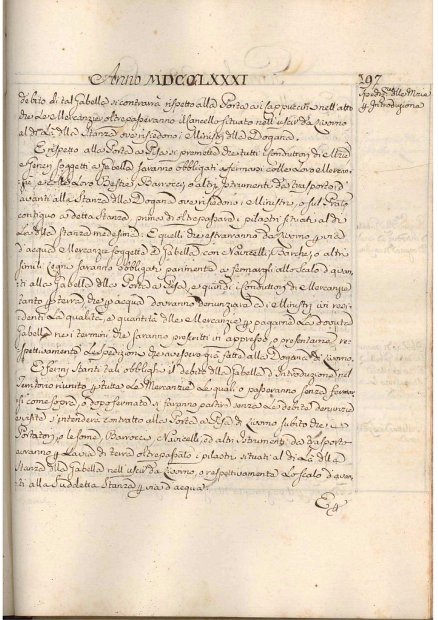 Anno MDCCLXXXI
197
Introduzione
debito di tal Gabella si contrarrà rispetto alla Porta a i Cappuccini nell'atto
che le Mercanzie oltrepasseranno il Cancello situato nell'uscir da Livorno
al di là della Stanza ove risiedono i Ministri della Dogana.
E rispetto alla Porta a Pisa si premette che tutti i Conduttori di
e Generi soggetti a Gabella saranno obbligati a fermarsi colle loro
e colle loro Bestie, Barocci, o altri Istrumenti da trasporto d'
avanti alla Stanza della Dogana ove risiedono i Ministri, o sul
contiguo a detta Stanza, prima di oltrepassare i pilastri situati al di
là della Stanza medesima. E quelli che estrarranno da Livorno p via
d'acqua Mercanzie soggette a Gabella con Navicelli, Barche, o altri
simili Legni saranno obbligati parimente a fermargli allo Scalo d'avan-
ti alla Gabella della Porta a Pisa, e quindi i Conduttori di Mercanzie
tanto p terra che p acqua dovranno denunziare a i Ministri ivi resi-
denti la qualità, e quantità delle Mercanzie, e pagarne la dovuta
Gabella ne i termini che saranno prescritti in appresso, o presentarne res-
pettivamente la spedizione che avessero già fatto alla Dogana di Livorno.
E fermi stanti tali obblighi, il debito della Gabella d'Introduzione nel
Territorio riunito p tutte le Mercanzie le quali o passeranno senza fermar-
si come sopra, o dopo fermate si faranno partire senza la debita denunzia
e visita s'intenderà contratto alla Porta a Pisa di Livorno subito che i
Portatori, o le some, Barocci, Navicelli, ed altri Istrumenti da trasporto
avranno p la via di terra oltrepassato i pilastri situati al di là della
Stanza della Gabella nell'uscir da Livorno, o respettivamente lo scalo d'avan-
ti alla suddetta Stanza p via d'acqua.